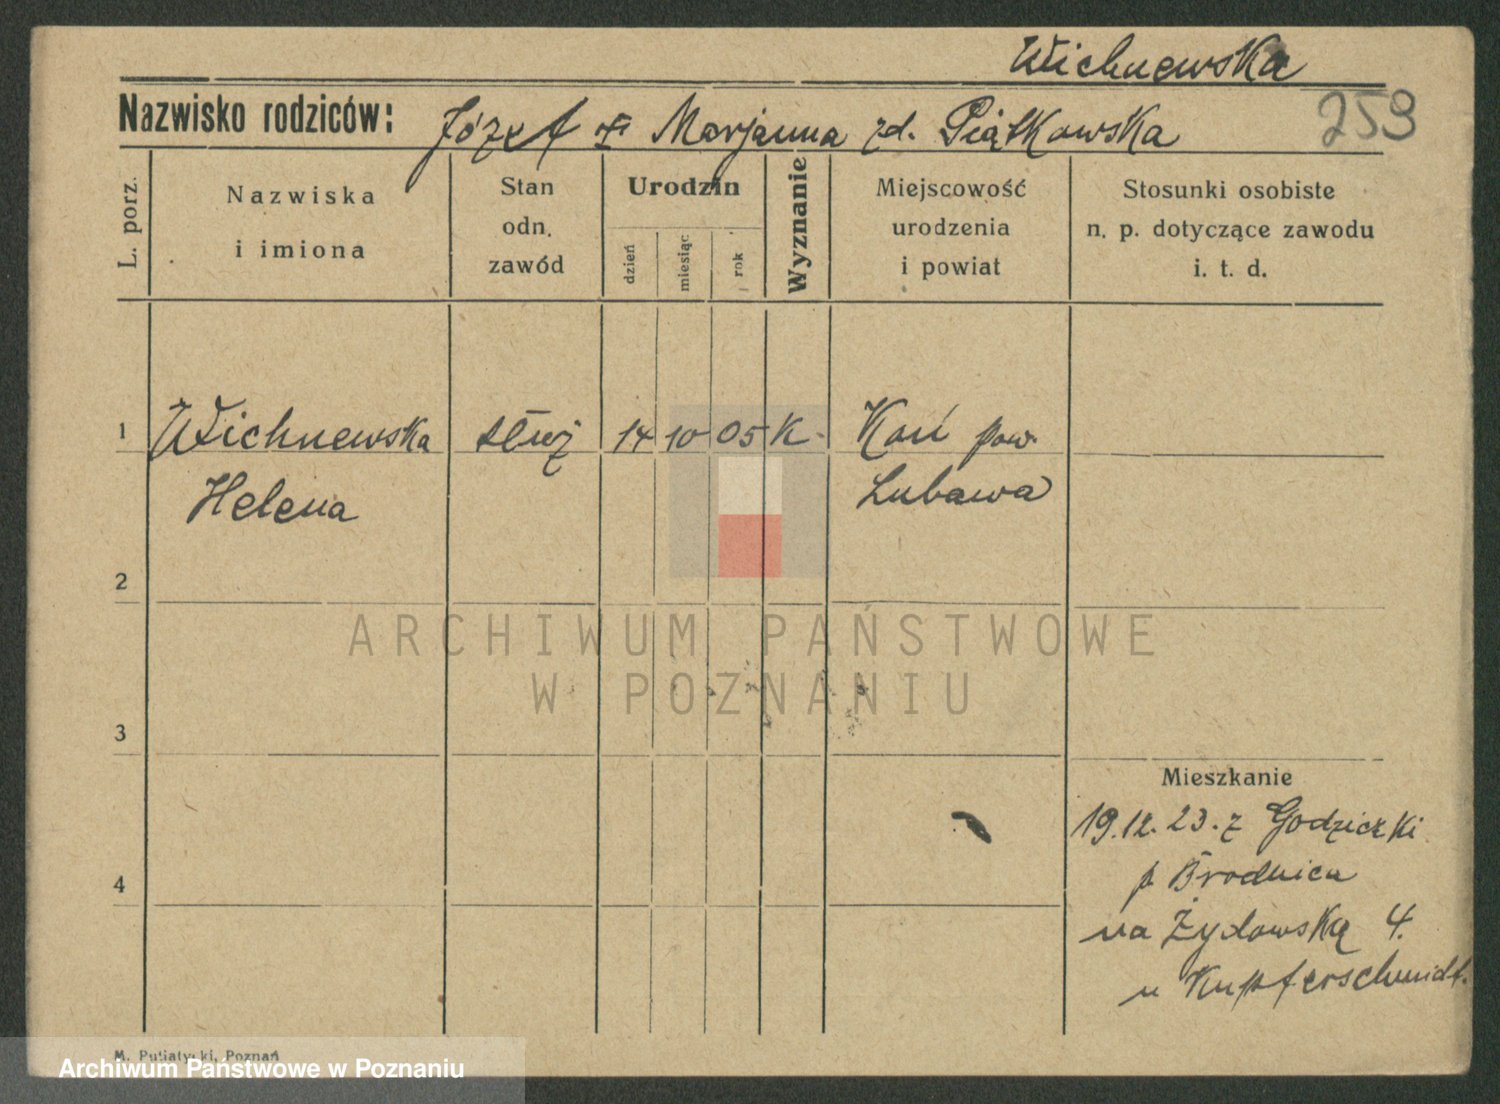 Wichnewska
Nazwisko rodziców: Józef i Marjanna zd. Piątkowska
259
L. porz.
Nazwiska
i imiona
Stan
odn.
zawód
Urodzin
dzień
miesiąc
rok
Wyznanie
Miejscowość
urodzenia
i powiat
Stosunki osobiste
n. p. dotyczące zawodu
i. t. d.
1 Wichnewska służ 14 10 05 K. Koń pow.
Helena Lubawa
2
3
4
Mieszkanie
19.12.23. z Godziczki
p Brodnica
na Żydowską 4.
u Kupferschmidt.
ARCHIWUM PAŃSTWOWE
W POZNANIU
M. Putiatycki, Poznań
Archiwum Państwowe w Poznaniu